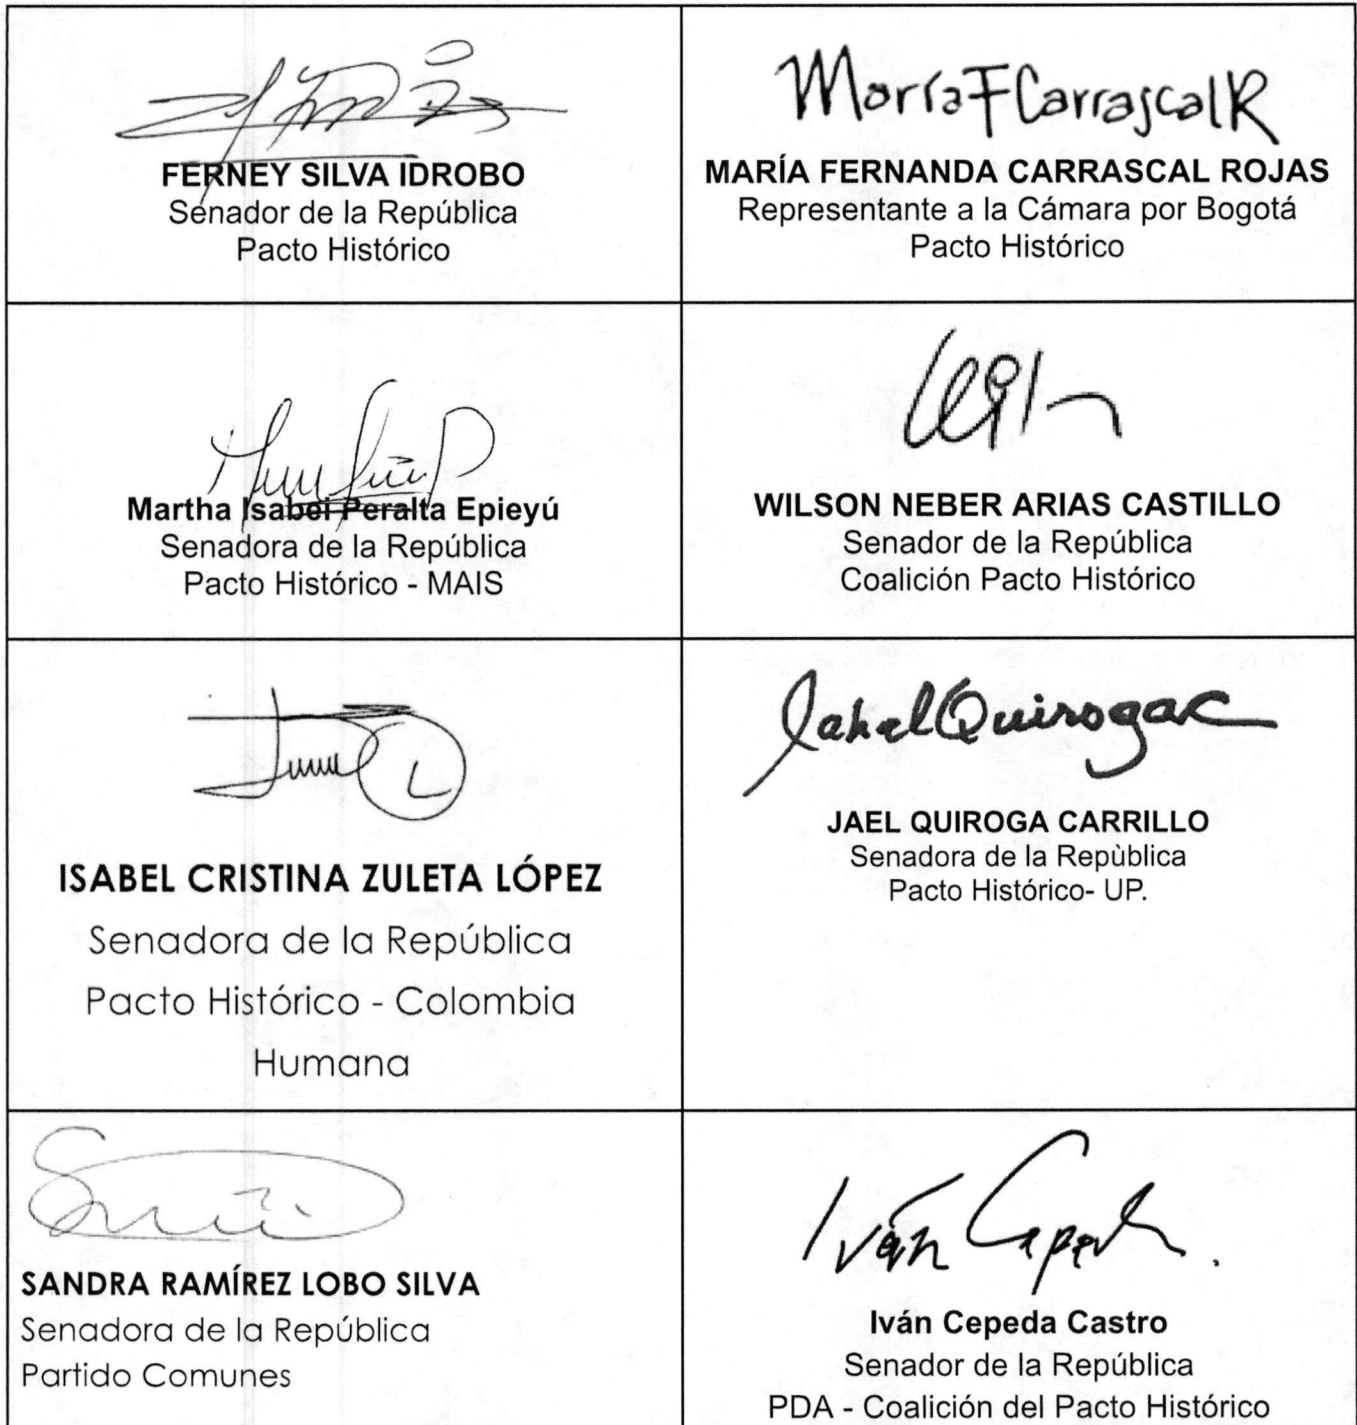 FERNEY SILVA IDROBO
Senador de la República
Pacto Histórico
MaríaFCarrascalR
MARÍA FERNANDA CARRASCAL ROJAS
Representante a la Cámara por Bogotá
Pacto Histórico
Martha Isabel Peralta Epieyú
Senadora de la República
Pacto Histórico - MAIS
WILSON NEBER ARIAS CASTILLO
Senador de la República
Coalición Pacto Histórico
ISABEL CRISTINA ZULETA LÓPEZ
Senadora de la República
Pacto Histórico - Colombia
Humana
JahelQuirogaC
JAEL QUIROGA CARRILLO
Senadora de la Repùblica
Pacto Histórico- UP.
SANDRA RAMÍREZ LOBO SILVA
Senadora de la República
Partido Comunes
Iván Cepeda
Iván Cepeda Castro
Senador de la República
PDA - Coalición del Pacto Histórico